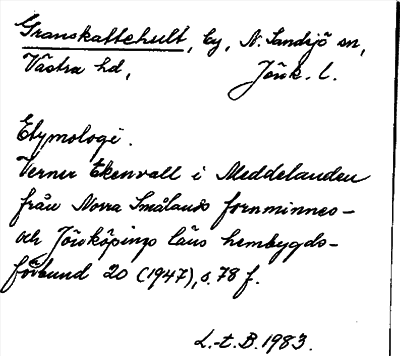 Granskattehult, by, N. Sandsjö sn,
Västra hd, Jönk. l.
Etymologi.
Verner Ekenvall i Meddelanden
från Norra Smålands fornminnes-
och Jönköpings läns hembygds-
förbund 20 (1947), s. 78 f.
L.-t. B. 1983.